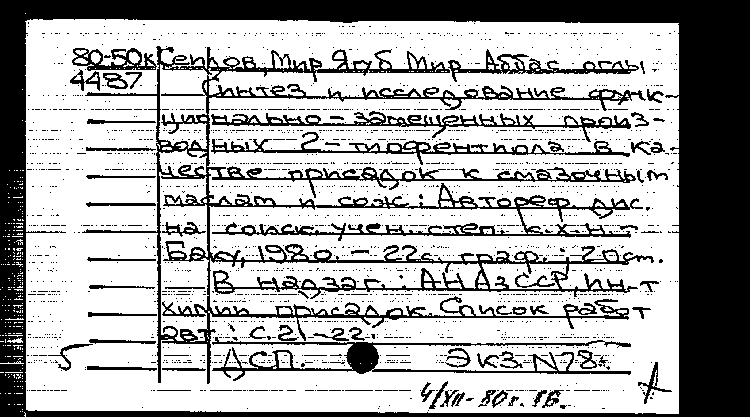 80-50к Сеидов, Мир Ягуб Мир Аббас оглы.
4487 Синтез и исследование функ-
ционально-замещенных произ-
водных 2-тиофентиола в ка-
честве присадок к смазочным
маслам и сож: Автореф. дис.
на соиск. учен. степ. к.х.н. -
Баку, 1980. - 22с., граф.; 20см.
В надзаг.: АН АзССР, Ин-т
химии присадок. Список работ
авт.: с.21-22.
ДСП. ЭКЗ. N78.
4/XII-80г.